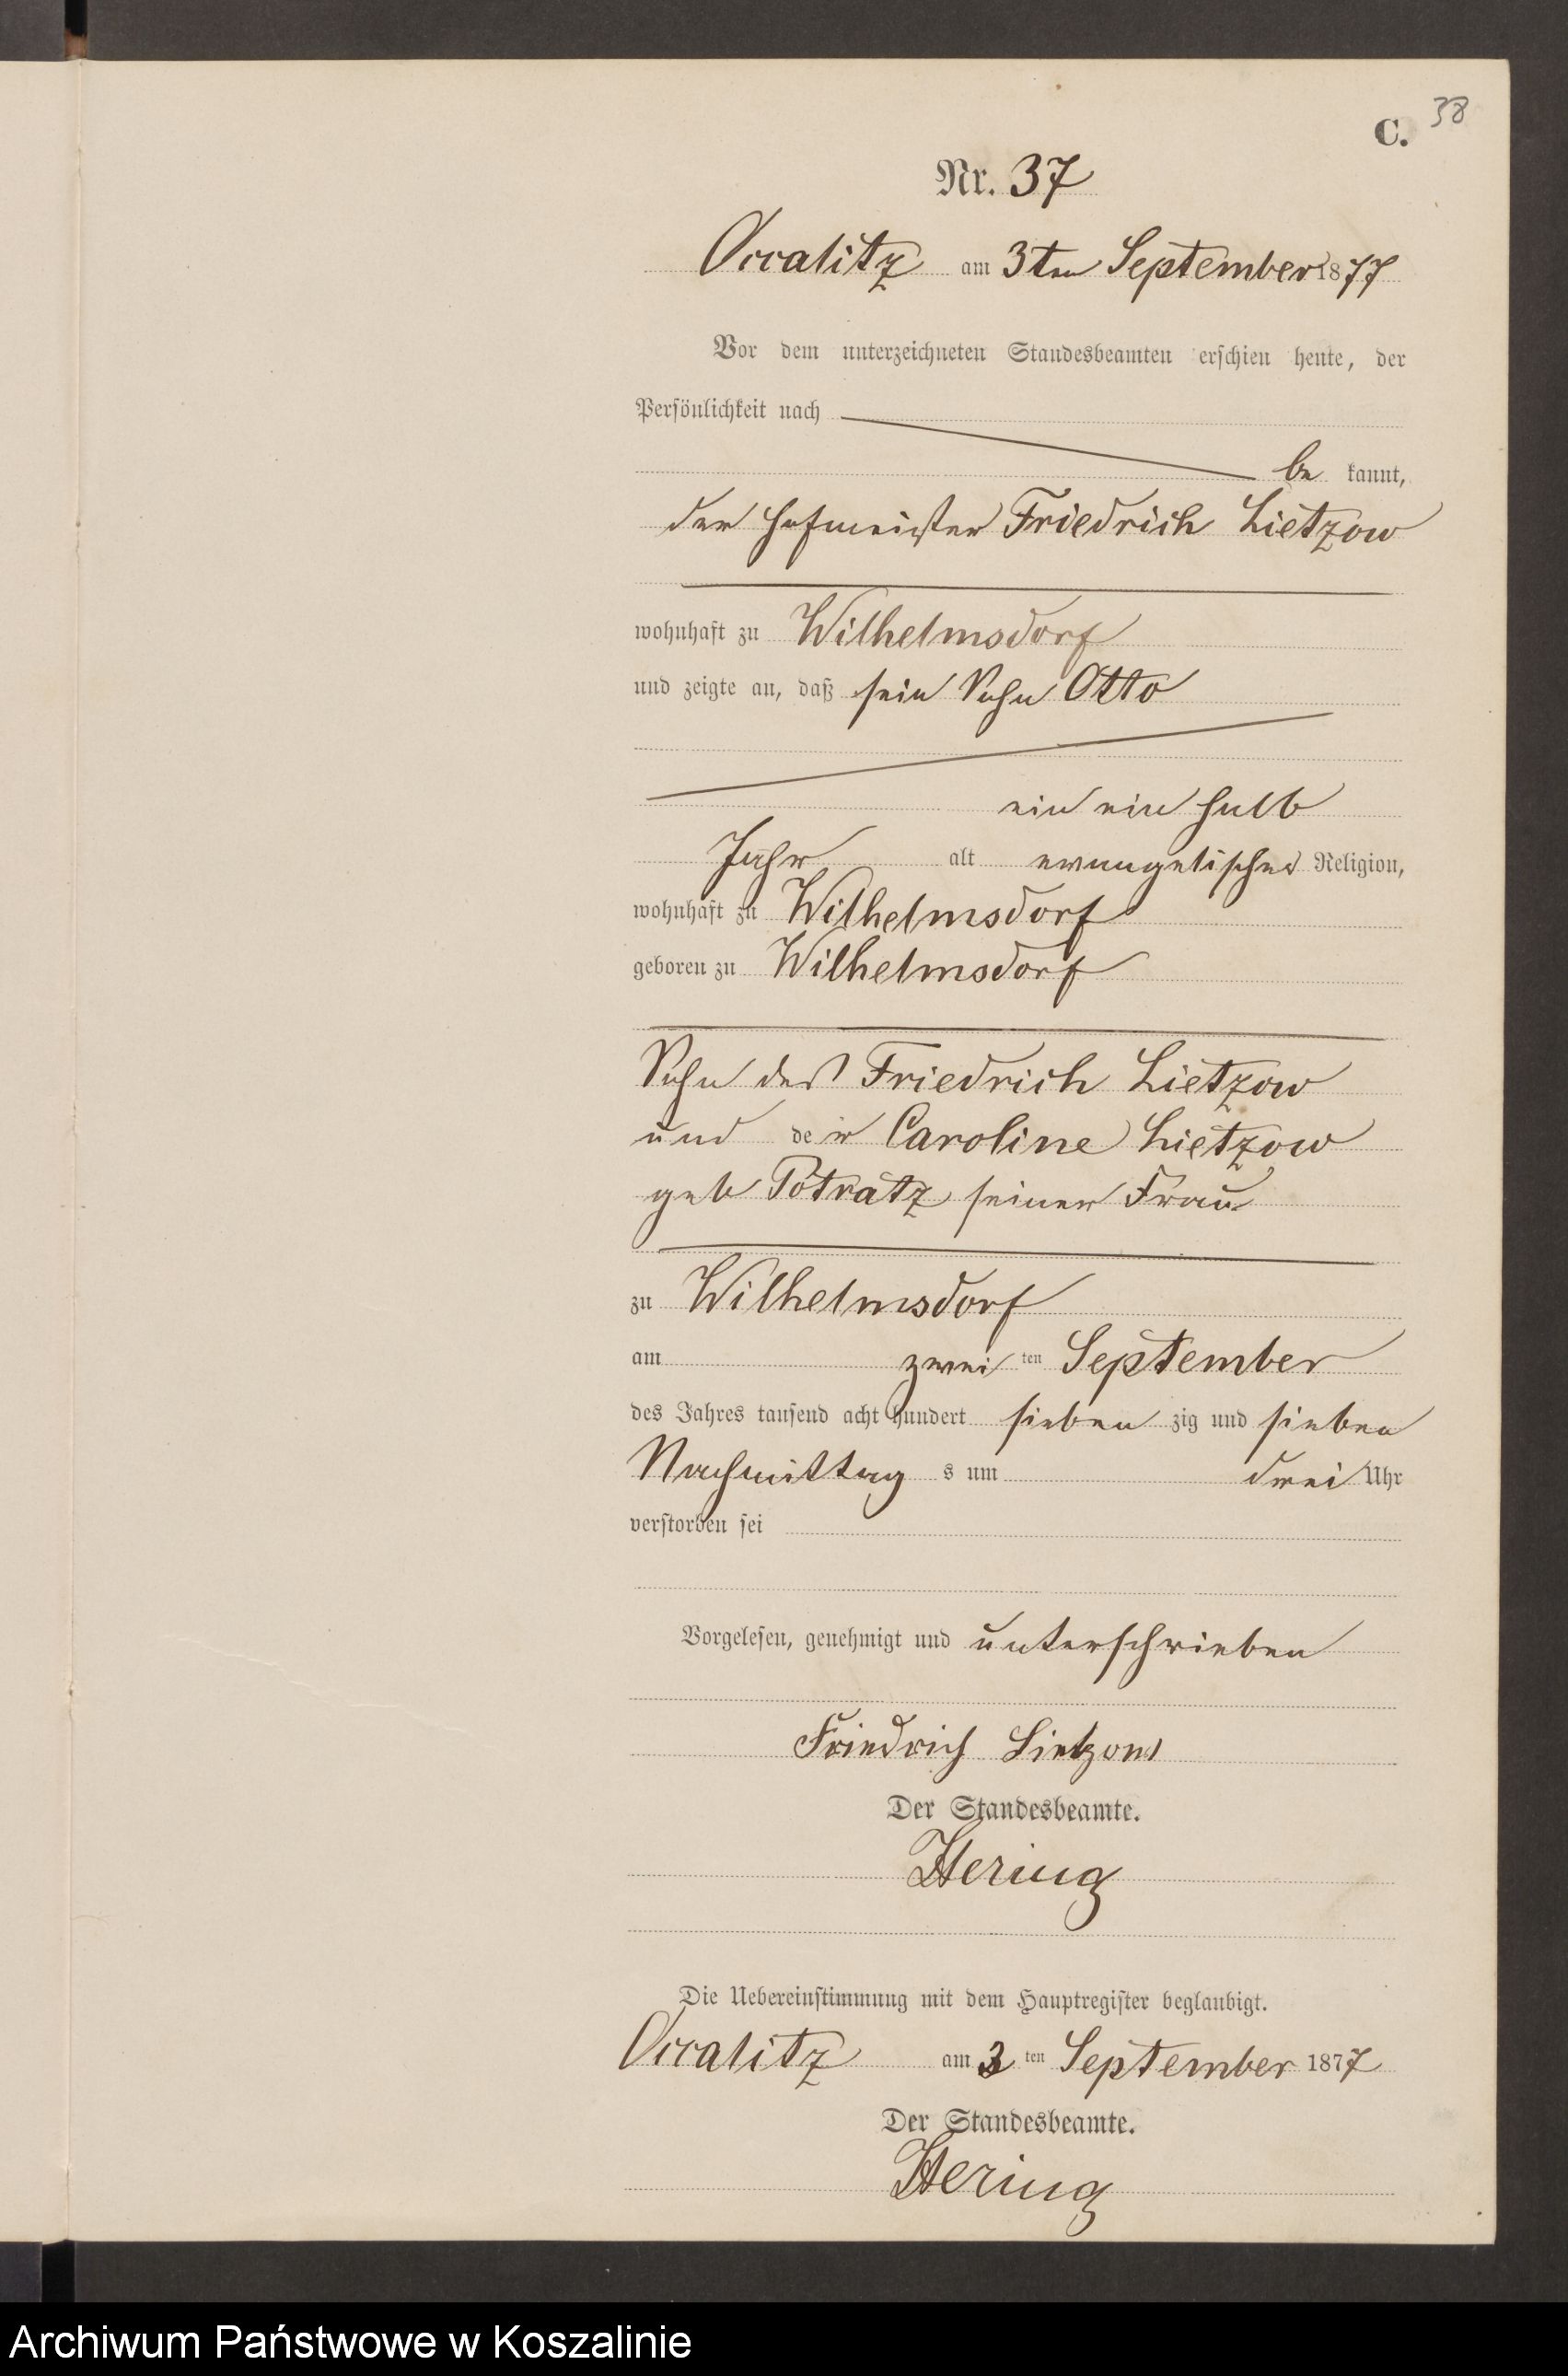 38
C.
Nr. 37
Occalitz am 3ten September 1877
Vor dem unterzeichneten Standesbeamten erschien heute, der
Persönlichkeit nach
be kannt,
der Hofmeister Friedrich Lietzow
wohnhaft zu Wilhelmsdorf
und zeigte an, daß sein Sohn Otto
ein ein halb
Jahr alt evangelischer Religion,
wohnhaft zu Wilhelmsdorf
geboren zu Wilhelmsdorf
Sohn des Friedrich Lietzow
und der Caroline Lietzow
geb Potratz seiner Frau
zu Wilhelmsdorf
am zwei ten September
des Jahres tausend acht hundert sieben zig und sieben
Nachmittag s um drei Uhr
verstorben sei
Vorgelesen, genehmigt und unterschrieben
Friedrich Lietzow
Der Standesbeamte.
Hering
Die Uebereinstimmung mit dem Hauptregister beglaubigt.
Occalitz am 3 ten September 1877
Der Standesbeamte.
Hering
Archiwum Państwowe w Koszalinie